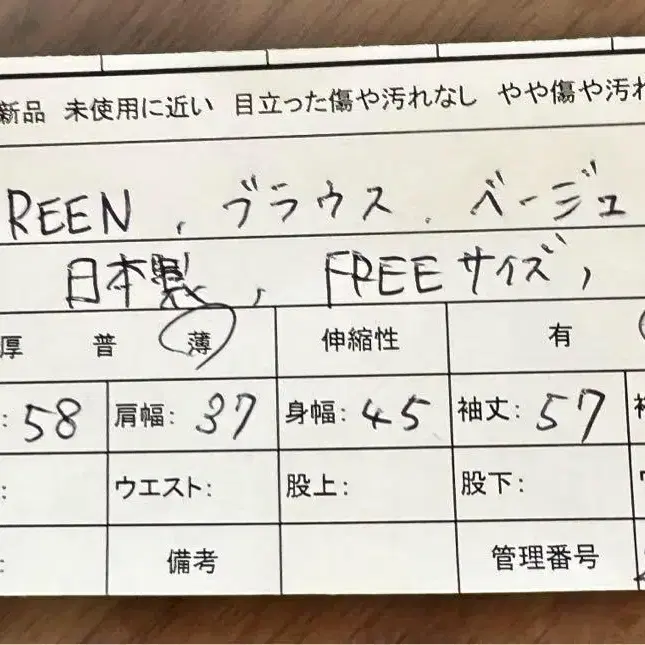 新品 未使用に近い 目立った傷や汚れなし やや傷や汚れ
REEN、ブラウス、ベージュ
日本製, FREEサイズ,
厚 普 薄 伸縮性 有
: 58 肩幅: 37 身幅: 45 袖丈: 57
: ウエスト: 股上: 股下:
: 備考 管理番号